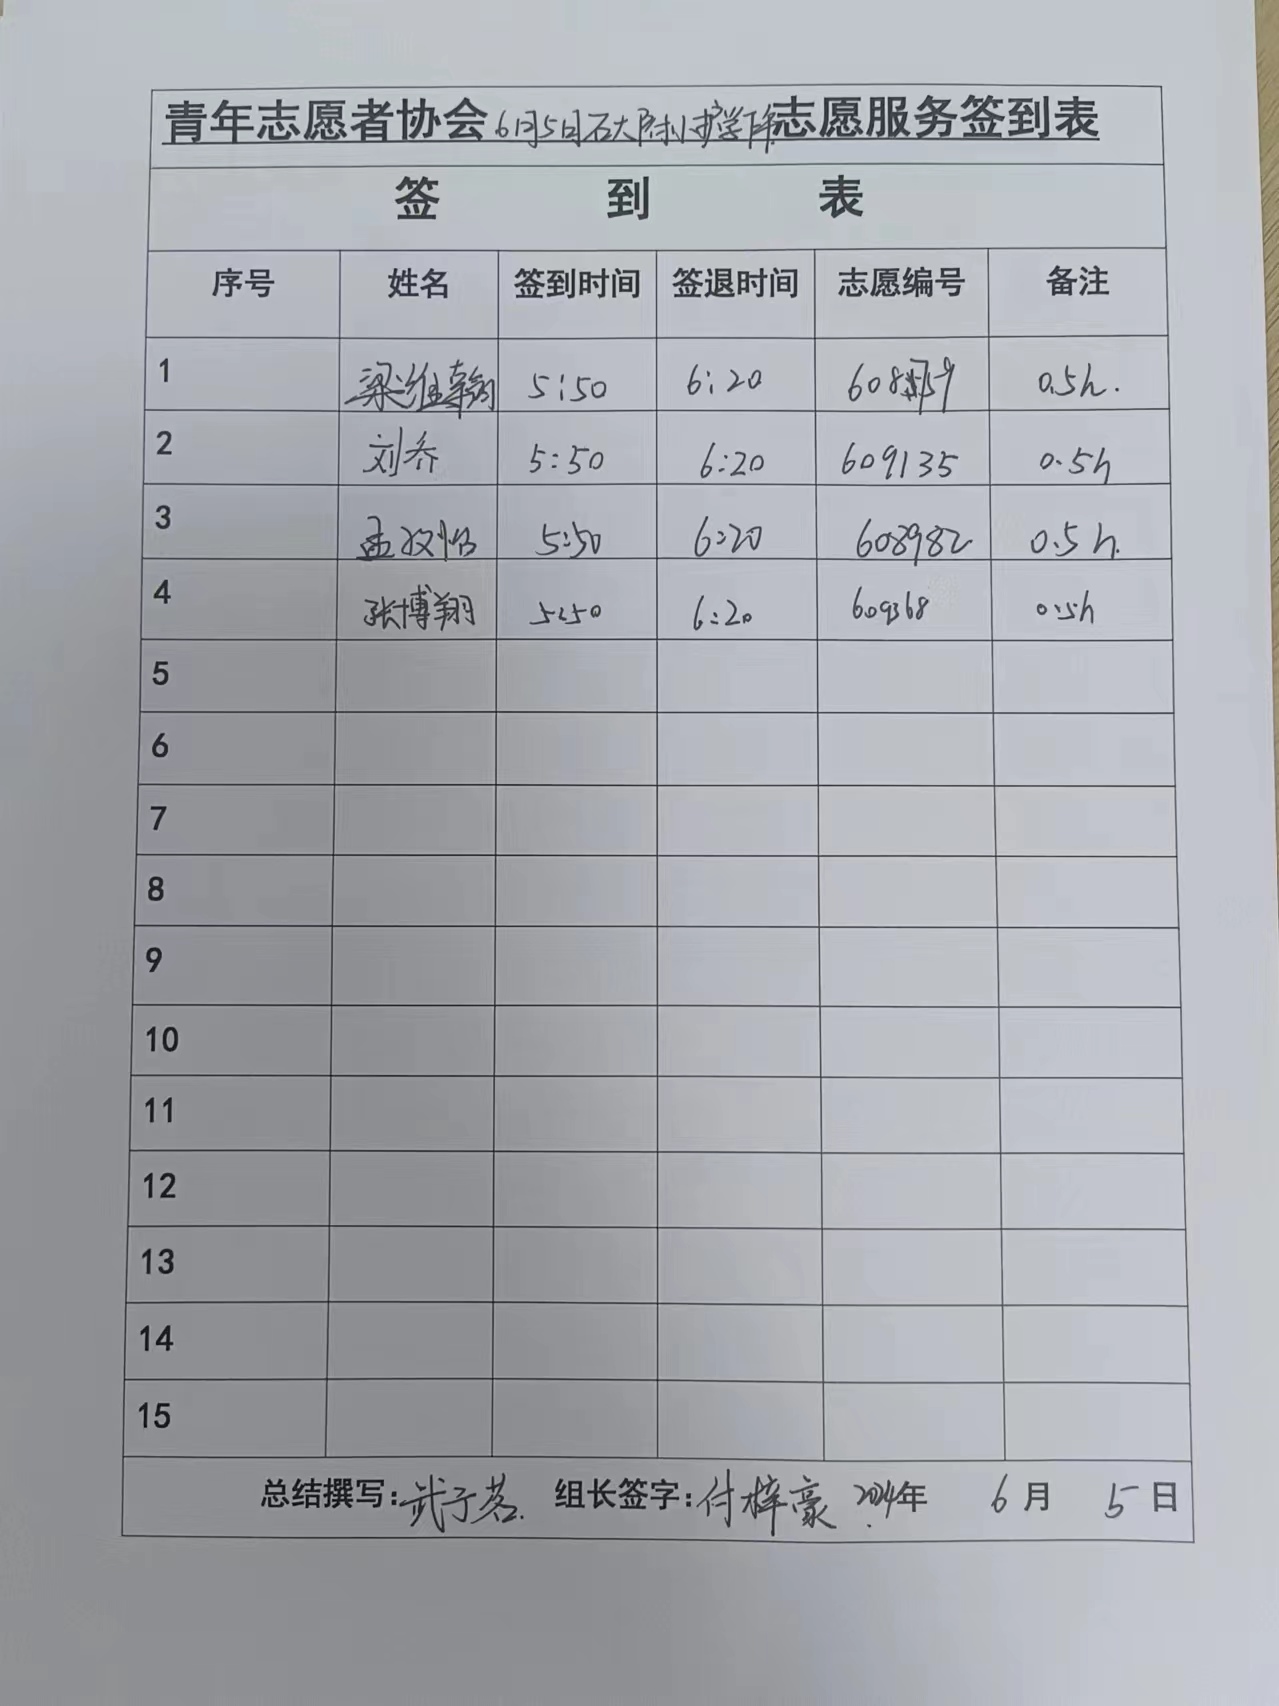 青年志愿者协会6月5日石大附小护学下午志愿服务签到表
签 到 表
序号 姓名 签到时间 签退时间 志愿编号 备注
1 梁维翰 5:50 6:20 0.5h.
2 刘乔 5:50 6:20 609135 0.5h
3 孟 5:50 6:20 608982 0.5h.
4 张博翔 5:50 6:20 609368 0.5h
5
6
7
8
9
10
11
12
13
14
15
总结撰写:武子茗. 组长签字:付梓豪 2024年 6月 5日